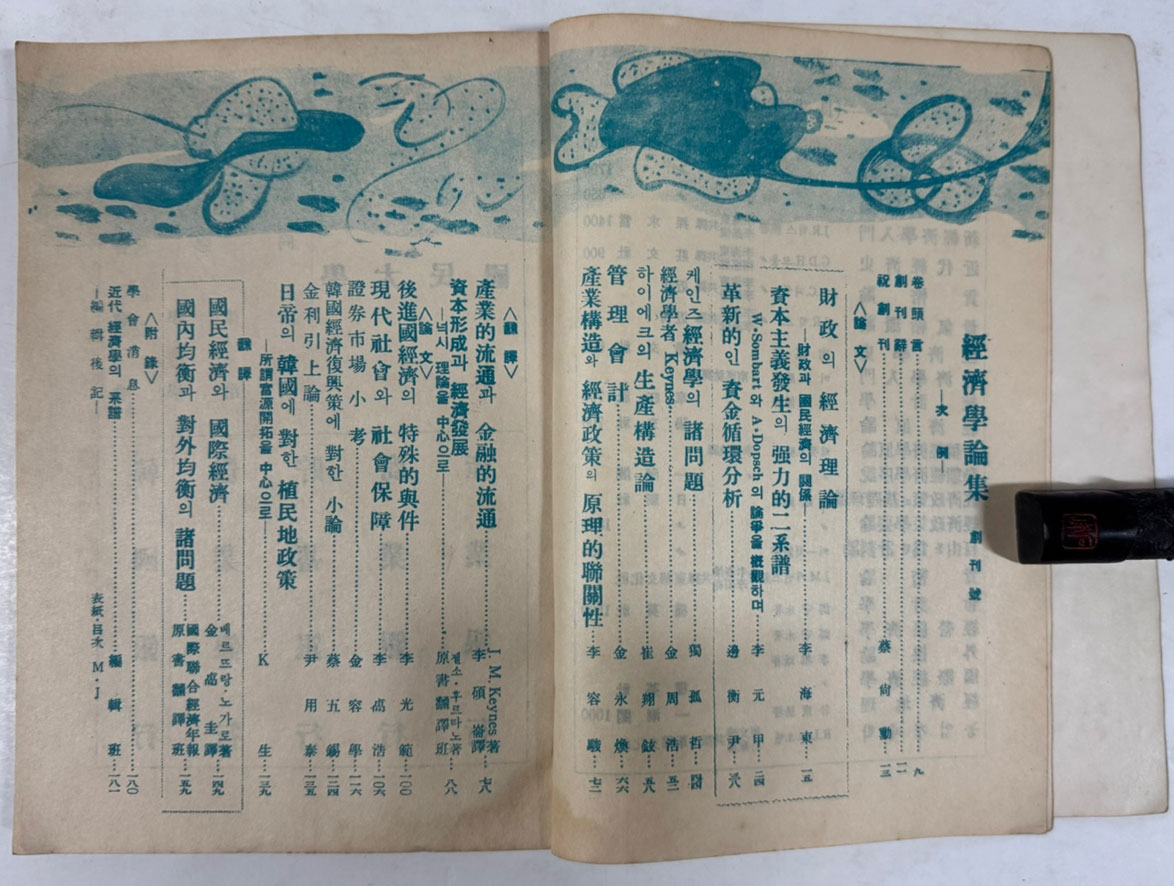 經濟學論集 創刊號
—次例—
卷頭言……九
創刊辭……一一
祝創刊……蔡尙動……一三
〈論文〉
財政의 經濟理論……李海東……一五
—財政과 國民經濟의 關係
資本主義發生의 强力的인 二系譜……李元甲……二四
W·Sombart와 A·Dopsch의 論爭을 槪觀하며
革新的인 資金循環分析……邊衡尹……三八
케인즈 經濟學의 諸問題……獨孤哲……四四
經濟學者 Keynes……金周浩……五二
하이에크의 生產構造論……崔翔鉉……五八
管理會計……金永煥……六六
產業構造와 經濟政策의 原理的聯關性……李容駿……七二
〈飜譯〉
產業的流通과 金融的流通……J. M. Keynes著
李碩崙譯……七八
資本形成과 經濟發展
—넉시 理論을 中心으로—……原書飜譯班……八八
〈論文〉
後進國經濟의 特殊的與件……李光範……一〇〇
現代社會와 社會保障……李卨浩……一〇六
證券市場小考……金容學……一一六
韓國經濟復興策에 對한 小論……蔡五錫……一二四
金利引上論……尹用泰……一三五
日帝의 韓國에 對한 植民地政策
—所謂富源開拓을 中心으로—……K生……一三九
飜譯
國民經濟와 國際經濟……베르뜨랑·노가로著
金卨圭譯……一四九
國內均衡과 對外均衡의 諸問題……國際聯合經濟年報
原書飜譯班……一五九
〈附錄〉
學會消息……一八〇
近代 經濟學의 系譜……編輯班……一八一
—編輯後記—
表紙·目次 M·J